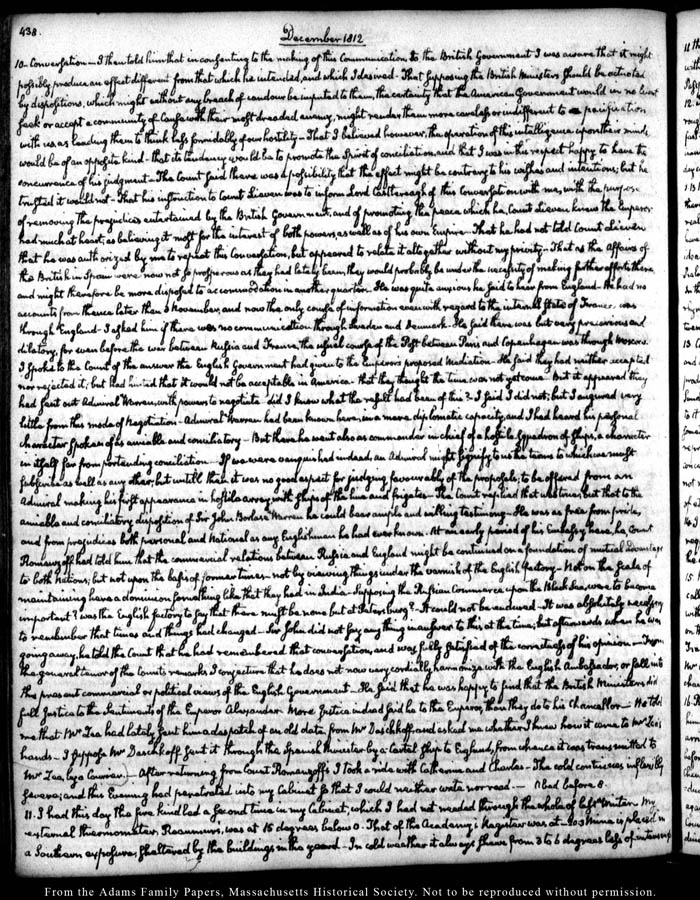 438.
December 1812
10. Conversation — I then told him that in consenting to the making of this Communication to the British Government I was aware that it might
possibly produce an effect different from that which he intended, and which I desired. That supposing the British Ministers should be actuated
by dispositions, which might without any breach of candour be imputed to them, the certainty that the American Government would in no event
seek or accept a community of Cause with their most dreaded enemy, might render them more careless or indifferent to a pacification
with us as leading them to think less formidably of our hostility — That I believed however, the operation of this intelligence upon their minds
would be of an opposite kind — that its tendency would be to promote the Spirit of conciliation and that I was in this respect happy to have the
concurrence of his judgment — The Count said there was a possibility that the effect might be contrary to his wishes and intentions; but he
trusted it would not — That his instruction to Count Lieven was to inform Lord Castlereagh of this Conversation with me, with the purpose
of removing the prejudices entertained by the British Government, and of promoting the peace which he, Count Lieven knew the Emperor
had much at heart, as believing it most for the interest of both powers, as well as of his own Empire — That he had not told Count Lieven
that he was authorized by me to repeat this Conversation, but appeared to relate it altogether without my privity — That as the Affairs of
the British in Spain were now not so prosperous as they had lately been, they would probably be under the necessity of making further efforts there,
and might therefore be more disposed to accommodation in another quarter. He was quite anxious he said to hear from England — He had no
accounts from thence later than 6 November, and now the only course of information even with regard to the internal State of France, was
through England — I asked him if there was no communication through Sweden and Denmark — He said there was but very precarious and
dilatory, for even before the war between Russia and France, the usual course of the Post between Paris and Copenhagen was through Moscow.
I spoke to the Count of the answer the English Government had given to the Emperor's proposed Mediation — He said they had neither accepted
nor rejected it; but had hinted that it would not be acceptable in America — that they thought the time was not yet come — But it appeared they
had sent out Admiral Warren, with powers to negotiate — did I know what the result had been of this? I said I did not; but I augured very
little from this mode of Negotiation — Admiral Warren had been known here, in a mere diplomatic capacity, and I had heard his personal
character spoken of as amiable and conciliatory — But there he went also as commander in chief of a hostile Squadron of ships, a character
in itself far from portending conciliation — If we were vanquished indeed, an Admiral might signify to us the terms to which we must
subscribe as well as any other; but until then it was no good aspect for judging favourably of the proposals, to be offered from an
Admiral making his first appearance in hostile array, with ships of the line and frigates — The Count replied that was true, but that to the
amiable and conciliatory disposition of Sir John Borlase Warren he could bear ample and willing testimony — He was as free from pride,
and from prejudices both personal and National as any Englishman he had ever known — At an early period of his Embassy here, he, Count
Romanzoff had told him that the commercial relations between Russia and England might be continued on a foundation of mutual advantage
to both Nations; but not upon the basis of former times — not by viewing things under the varnish of the English factory — Not on the scale of
maintaining here a dominion, something like that they had in India — Supposing the Russian Commerce upon the Black Sea, were to become
important? was the English factory to say that there might be none but at Petersburg? — It could not be endured — It was absolutely necessary
to remember that times and things had changed — Sir John did not say any thing in answer to this at the time; but afterwards when he was
going away, he told the Count that he had remembered that conversation, and was fully satisfied of the correctness of his opinion — From
the general tenor of the Count's remarks I conjecture that he does not now very cordially harmonize with the English Ambassador, or fall into
the present commercial or political views of the English Government — He said that he was happy to find that the British Ministers did
full Justice to the Sentiments of the Emperor Alexander. More Justice indeed said he to the Emperor, than they do to his Chancellor — He told
me that Mr Zea had lately sent him a despatch of an old date, from Mr Daschkoff, and asked me whether I knew how it came to Mr Zea's
hands — I suppose Mr Daschkoff sent it through the Spanish Minister by a Cartel ship to England, from whence it was transmitted to
Mr Zea, by a Courier. — After returning from Count Romanzoff's I took a ride with Catherine and Charles — The cold continues inflexibly
severe; and this Evening had penetrated into my Cabinet so that I could neither write nor read. — A bed before 8.
11. I had this day the fire kindled a second time in my Cabinet, which I had not needed through the whole of last Winter. My
external thermometer, Reaumur's, was at 15 degrees below 0. That of the Academy's Register was at -20.3 Mine is placed in
a Southern exposure, sheltered by the buildings in the yard — In cold weather it always shews from 3 to 6 degrees less of
From the Adams Family Papers, Massachusetts Historical Society. Not to be reproduced without permission.